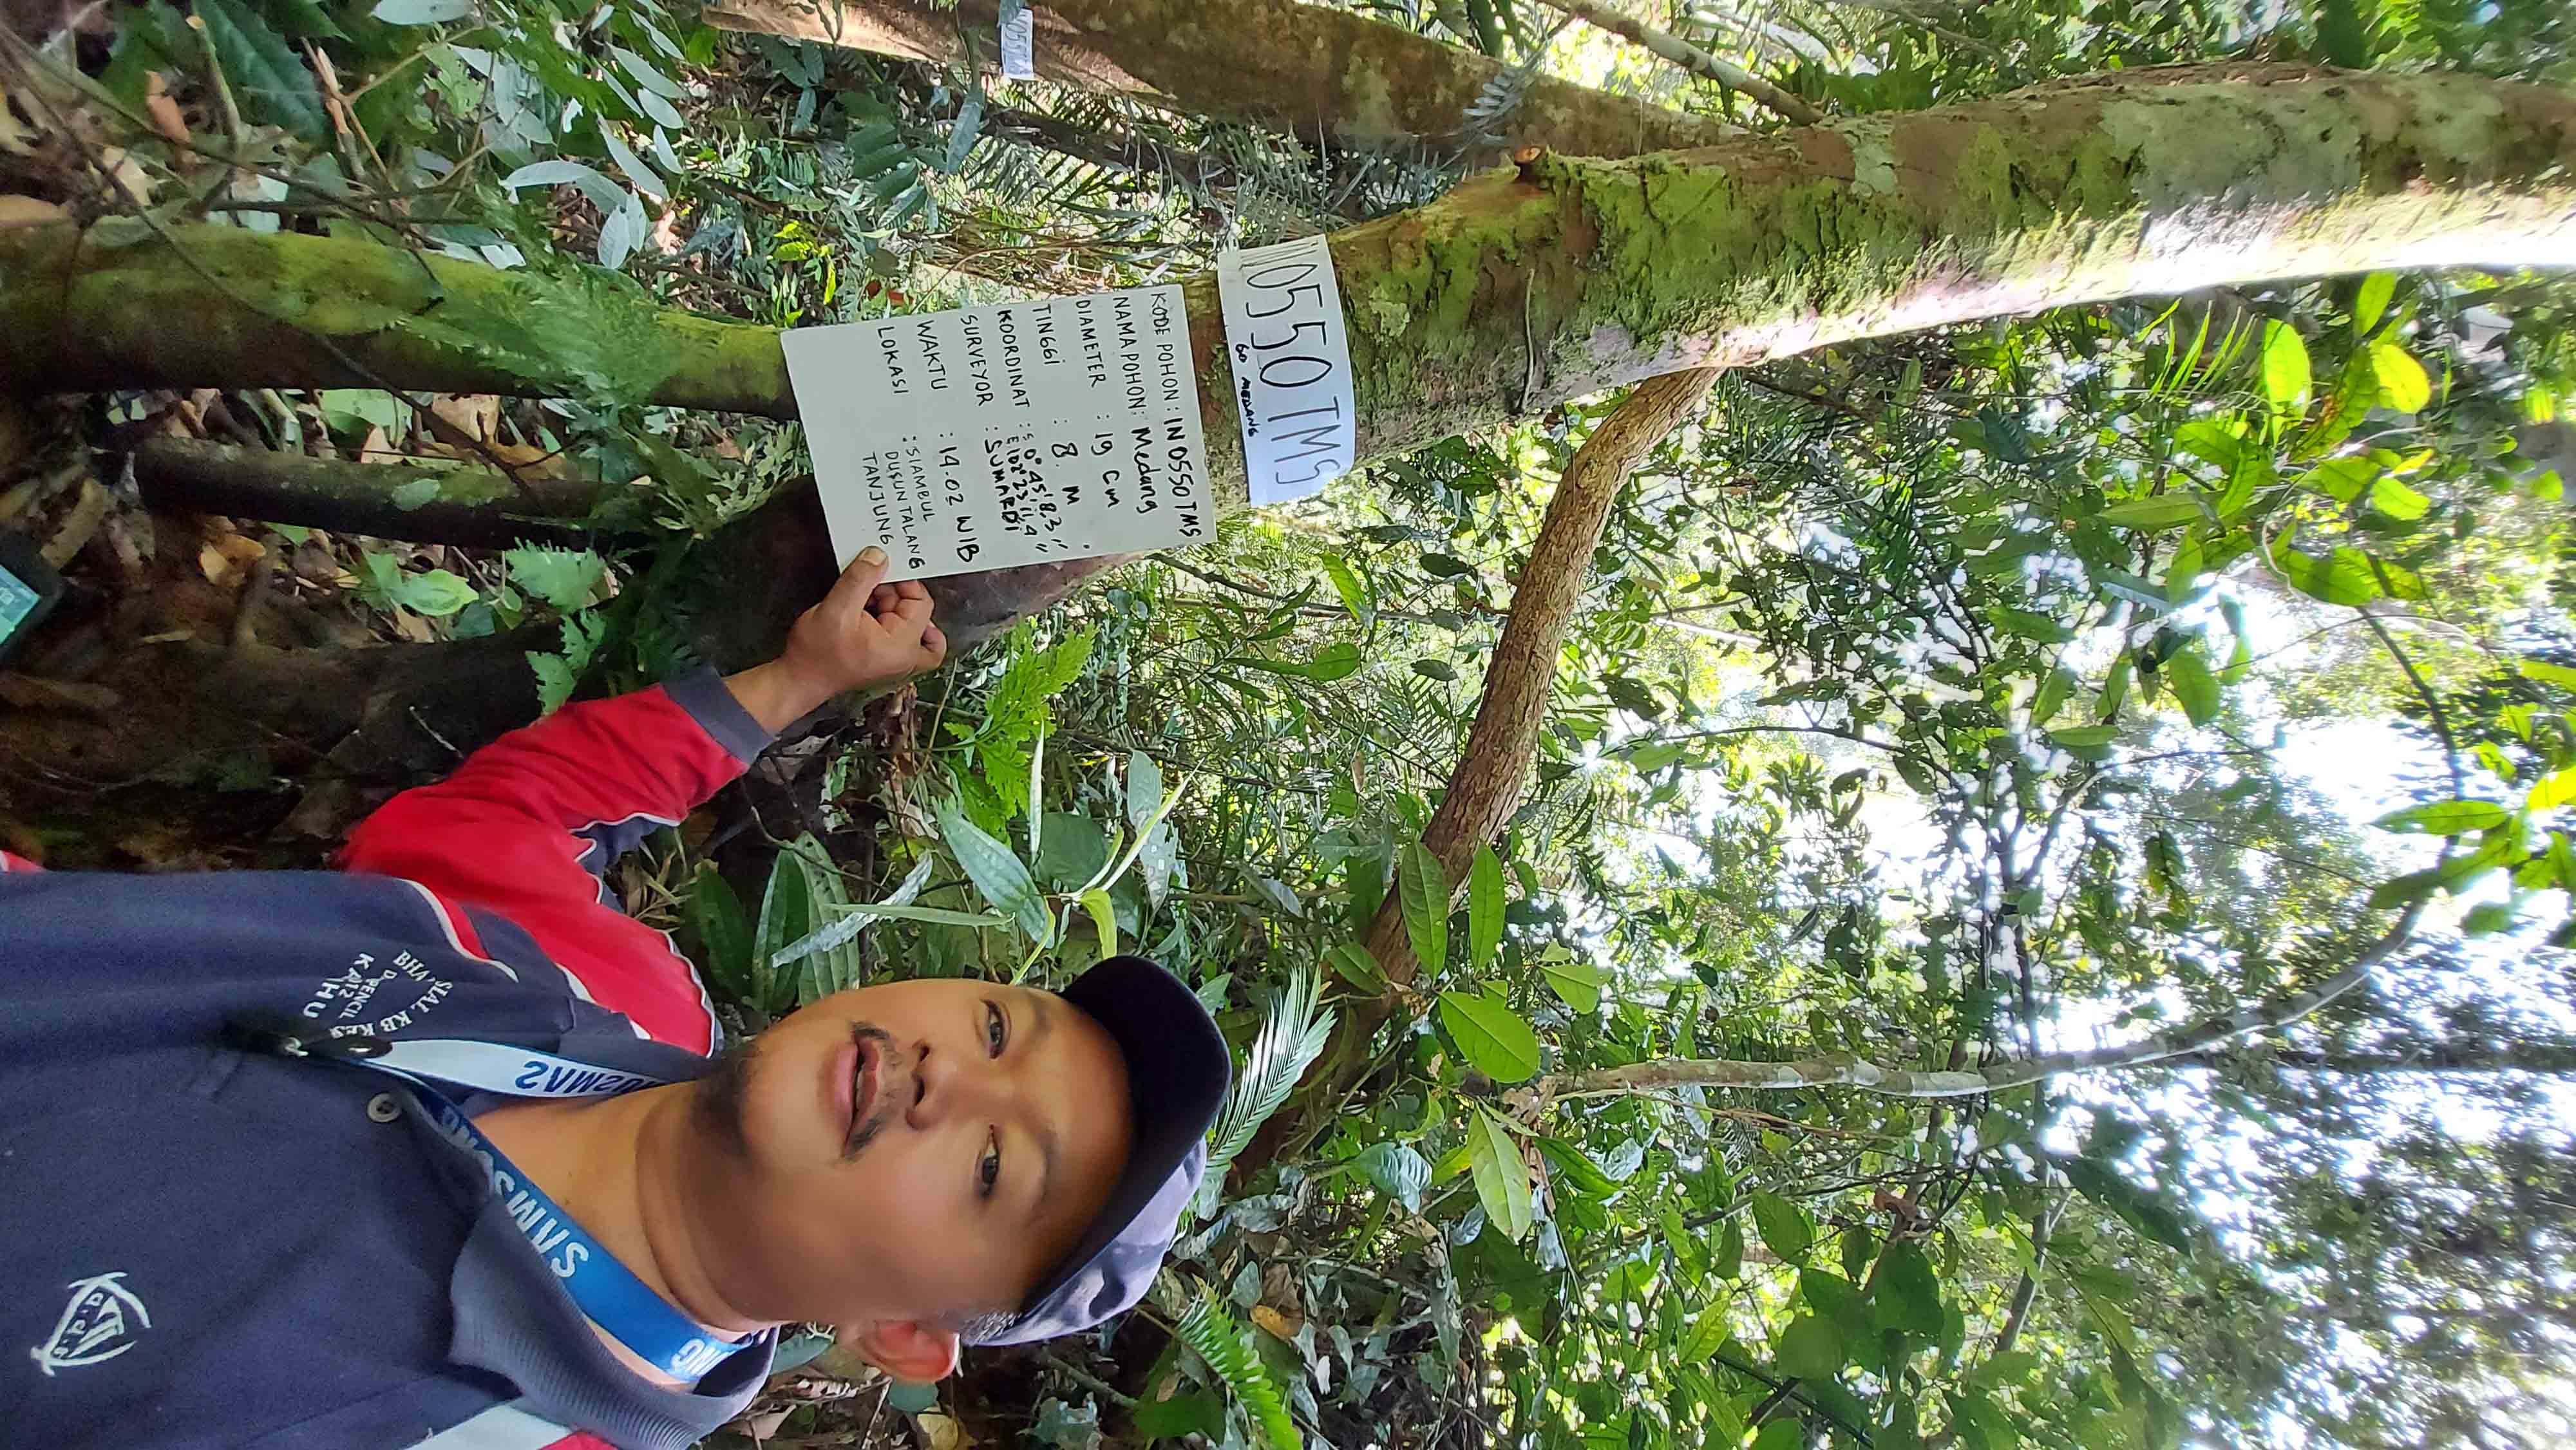 IN0550 TMS
60 MEDANG
KODE POHON : IN 0550 TMS
NAMA POHON : Medang
DIAMETER : 19 Cm
TINGGI : 8. M
KOORDINAT : S 0° 45' 8,3 "
E 102° 23' 11,4 "
SURVEYOR : SUMARDI
WAKTU : 14.02 WIB
LOKASI : SIAMBUL
DUSUN TALANG
TANJUNG
SAMSUNG
SIAL KB KES
KAHU